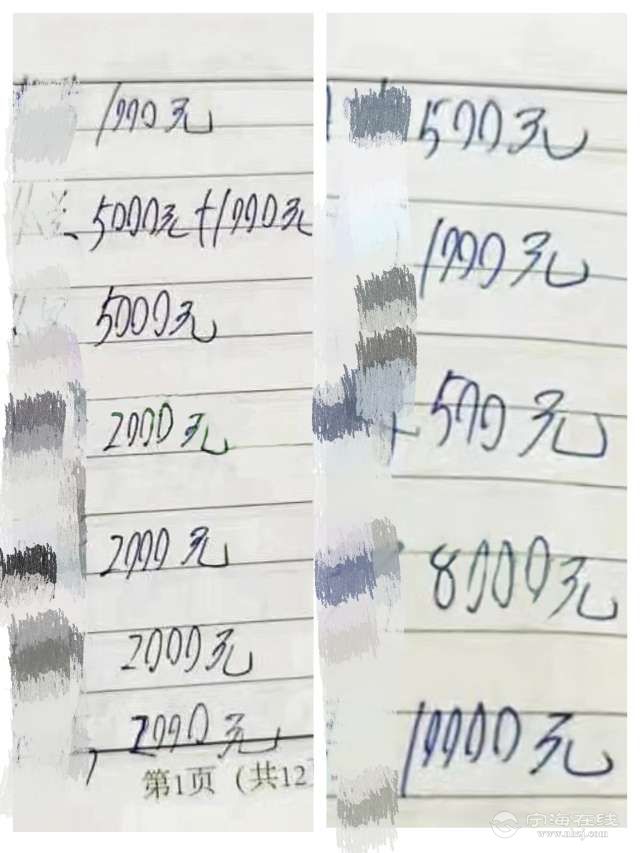 1000元
、5000元+1000元
5000元
2000元
2000元
2000元
2000元
第1页 (共12
500元
1000元
+500元
8000元
10000元
宁海在线
www.nhzj.com